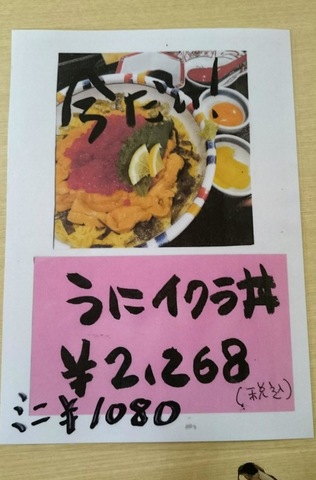 今だけ!
うにイクラ丼
¥2,268
(税込)
ミニ¥1080